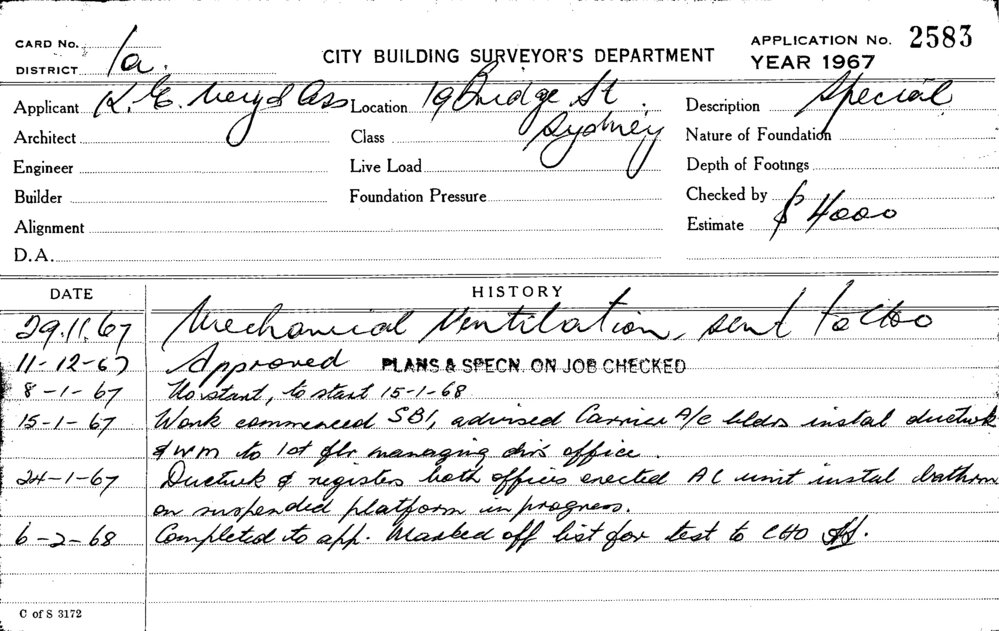 CARD No. 1a.
DISTRICT
CITY BUILDING SURVEYOR'S DEPARTMENT
APPLICATION No. 2583
YEAR 1967
Applicant K. E. & Ass Location 19 Bridge St. Description Special
Architect Class Sydney Nature of Foundation
Engineer Live Load Depth of Footings
Builder Foundation Pressure Checked by
Alignment Estimate $ 4000
D.A.
DATE HISTORY
29.11.67 Mechanical Ventilation, sent to CHO
11-12-67 Approved PLANS & SPECN. ON JOB CHECKED
8-1-67 No start, to start 15-1-68
15-1-67 Work commenced SBI, advised Carrier A/c bldrs instal ductwk
& wm to 1st flr managing dirs office.
24-1-67 Ductwk & registers both offices erected AC unit instal bathrm
on suspended platform in progress.
6-2-68 Completed to app. Marked off list for test to CHO
C of S 3172